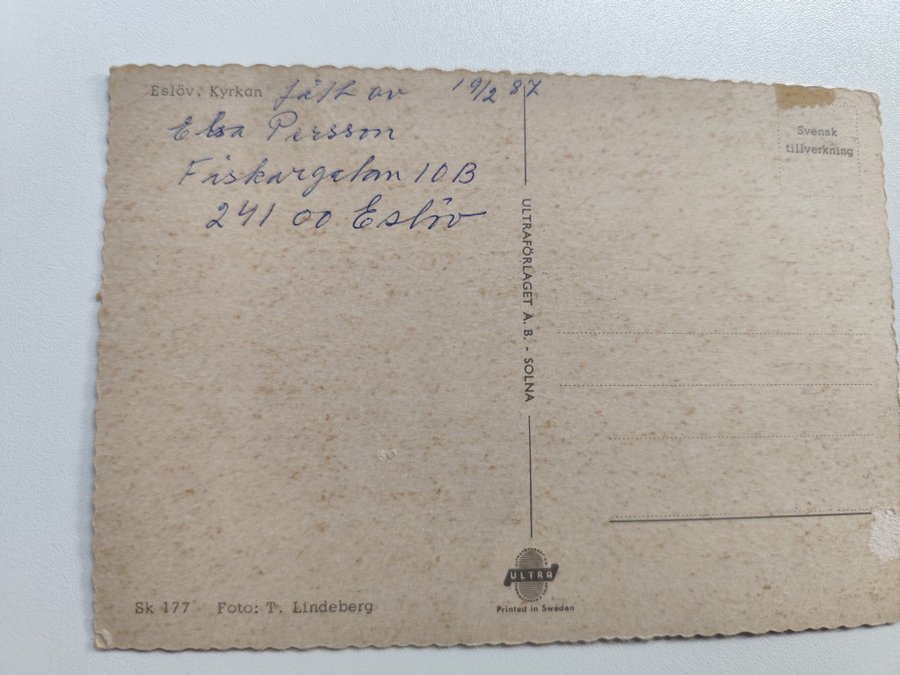 Eslöv. Kyrkan fått av 19/2 87
Elsa Persson
Fiskargatan 10B
241 00 Eslöv
Svensk
tillverkning
ULTRAFÖRLAGET A.B. - SOLNA
ULTRA
Printed in Sweden
Sk 177 Foto: T. Lindeberg